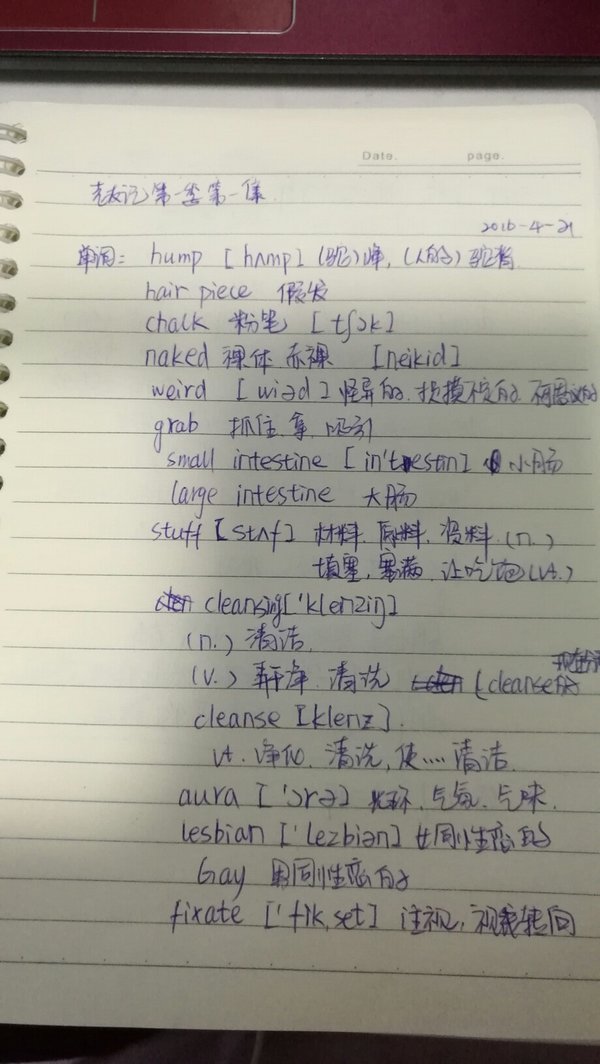 Date.          page.
老友记第一季第一集
2016-4-21
单词: hump [hʌmp] (驼)峰, (人的)驼背
hair piece 假发
chalk 粉笔 [tʃɔk]
naked 裸体 赤裸 [neikid]
weird [wiəd] 怪异的. 捉摸不定的. 不可思议的
grab 抓住. 拿. 吸引
small intestine [in'testin] 小肠
large intestine 大肠
stuff [stʌf] 材料. 原料. 资料. (n.)
填塞, 塞满. 让吃饱(vt.)
cleansing['klenziŋ]
(n.) 清洁
现在分词
(v.) 弄净. 清洗 (cleanse的
cleanse [klenz].
vt. 净化. 清洗, 使.... 清洁.
aura ['ɔrə] 光环. 气氛. 气味.
lesbian ['lezbiən] 女同性恋的
Gay 男同性恋的
fixate ['fik,set] 注视, 视线转向